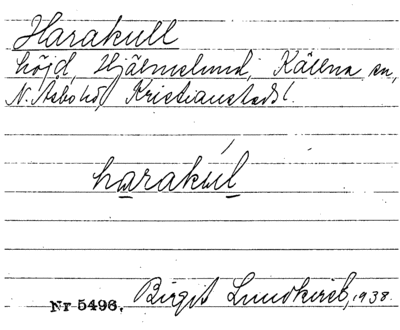 Harakull
höjd, Hjälmslund, Källna sn,
N. Åsbo hd, Kristianstads l.
harakúl
Nr 5496. Birgit Lundkvist, 1938.